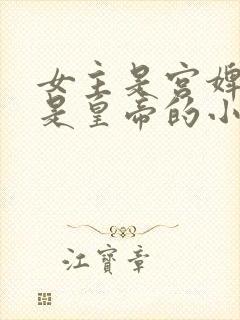 女主是宫婢
是皇帝的小
江寶章